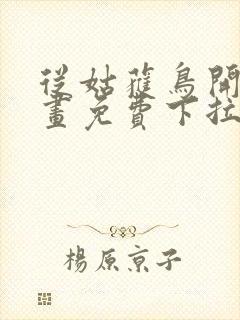 從姑獲鳥開
畫免費下拉
楊原京子